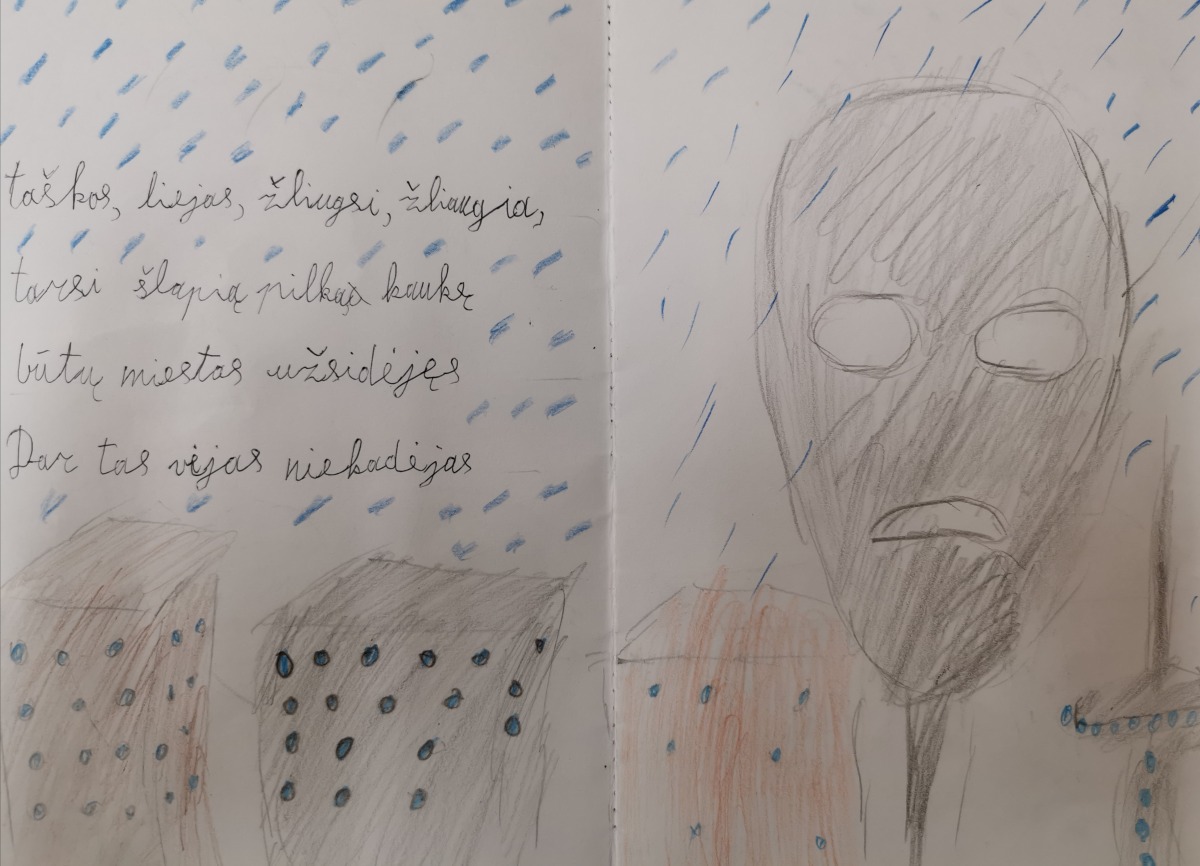 taškos, liejas, žliugsi, žliaugia,
tarsi šlapią pilkąją kaukę
būtų miestas užsidėjęs
Dar tas vėjas niekadėjas